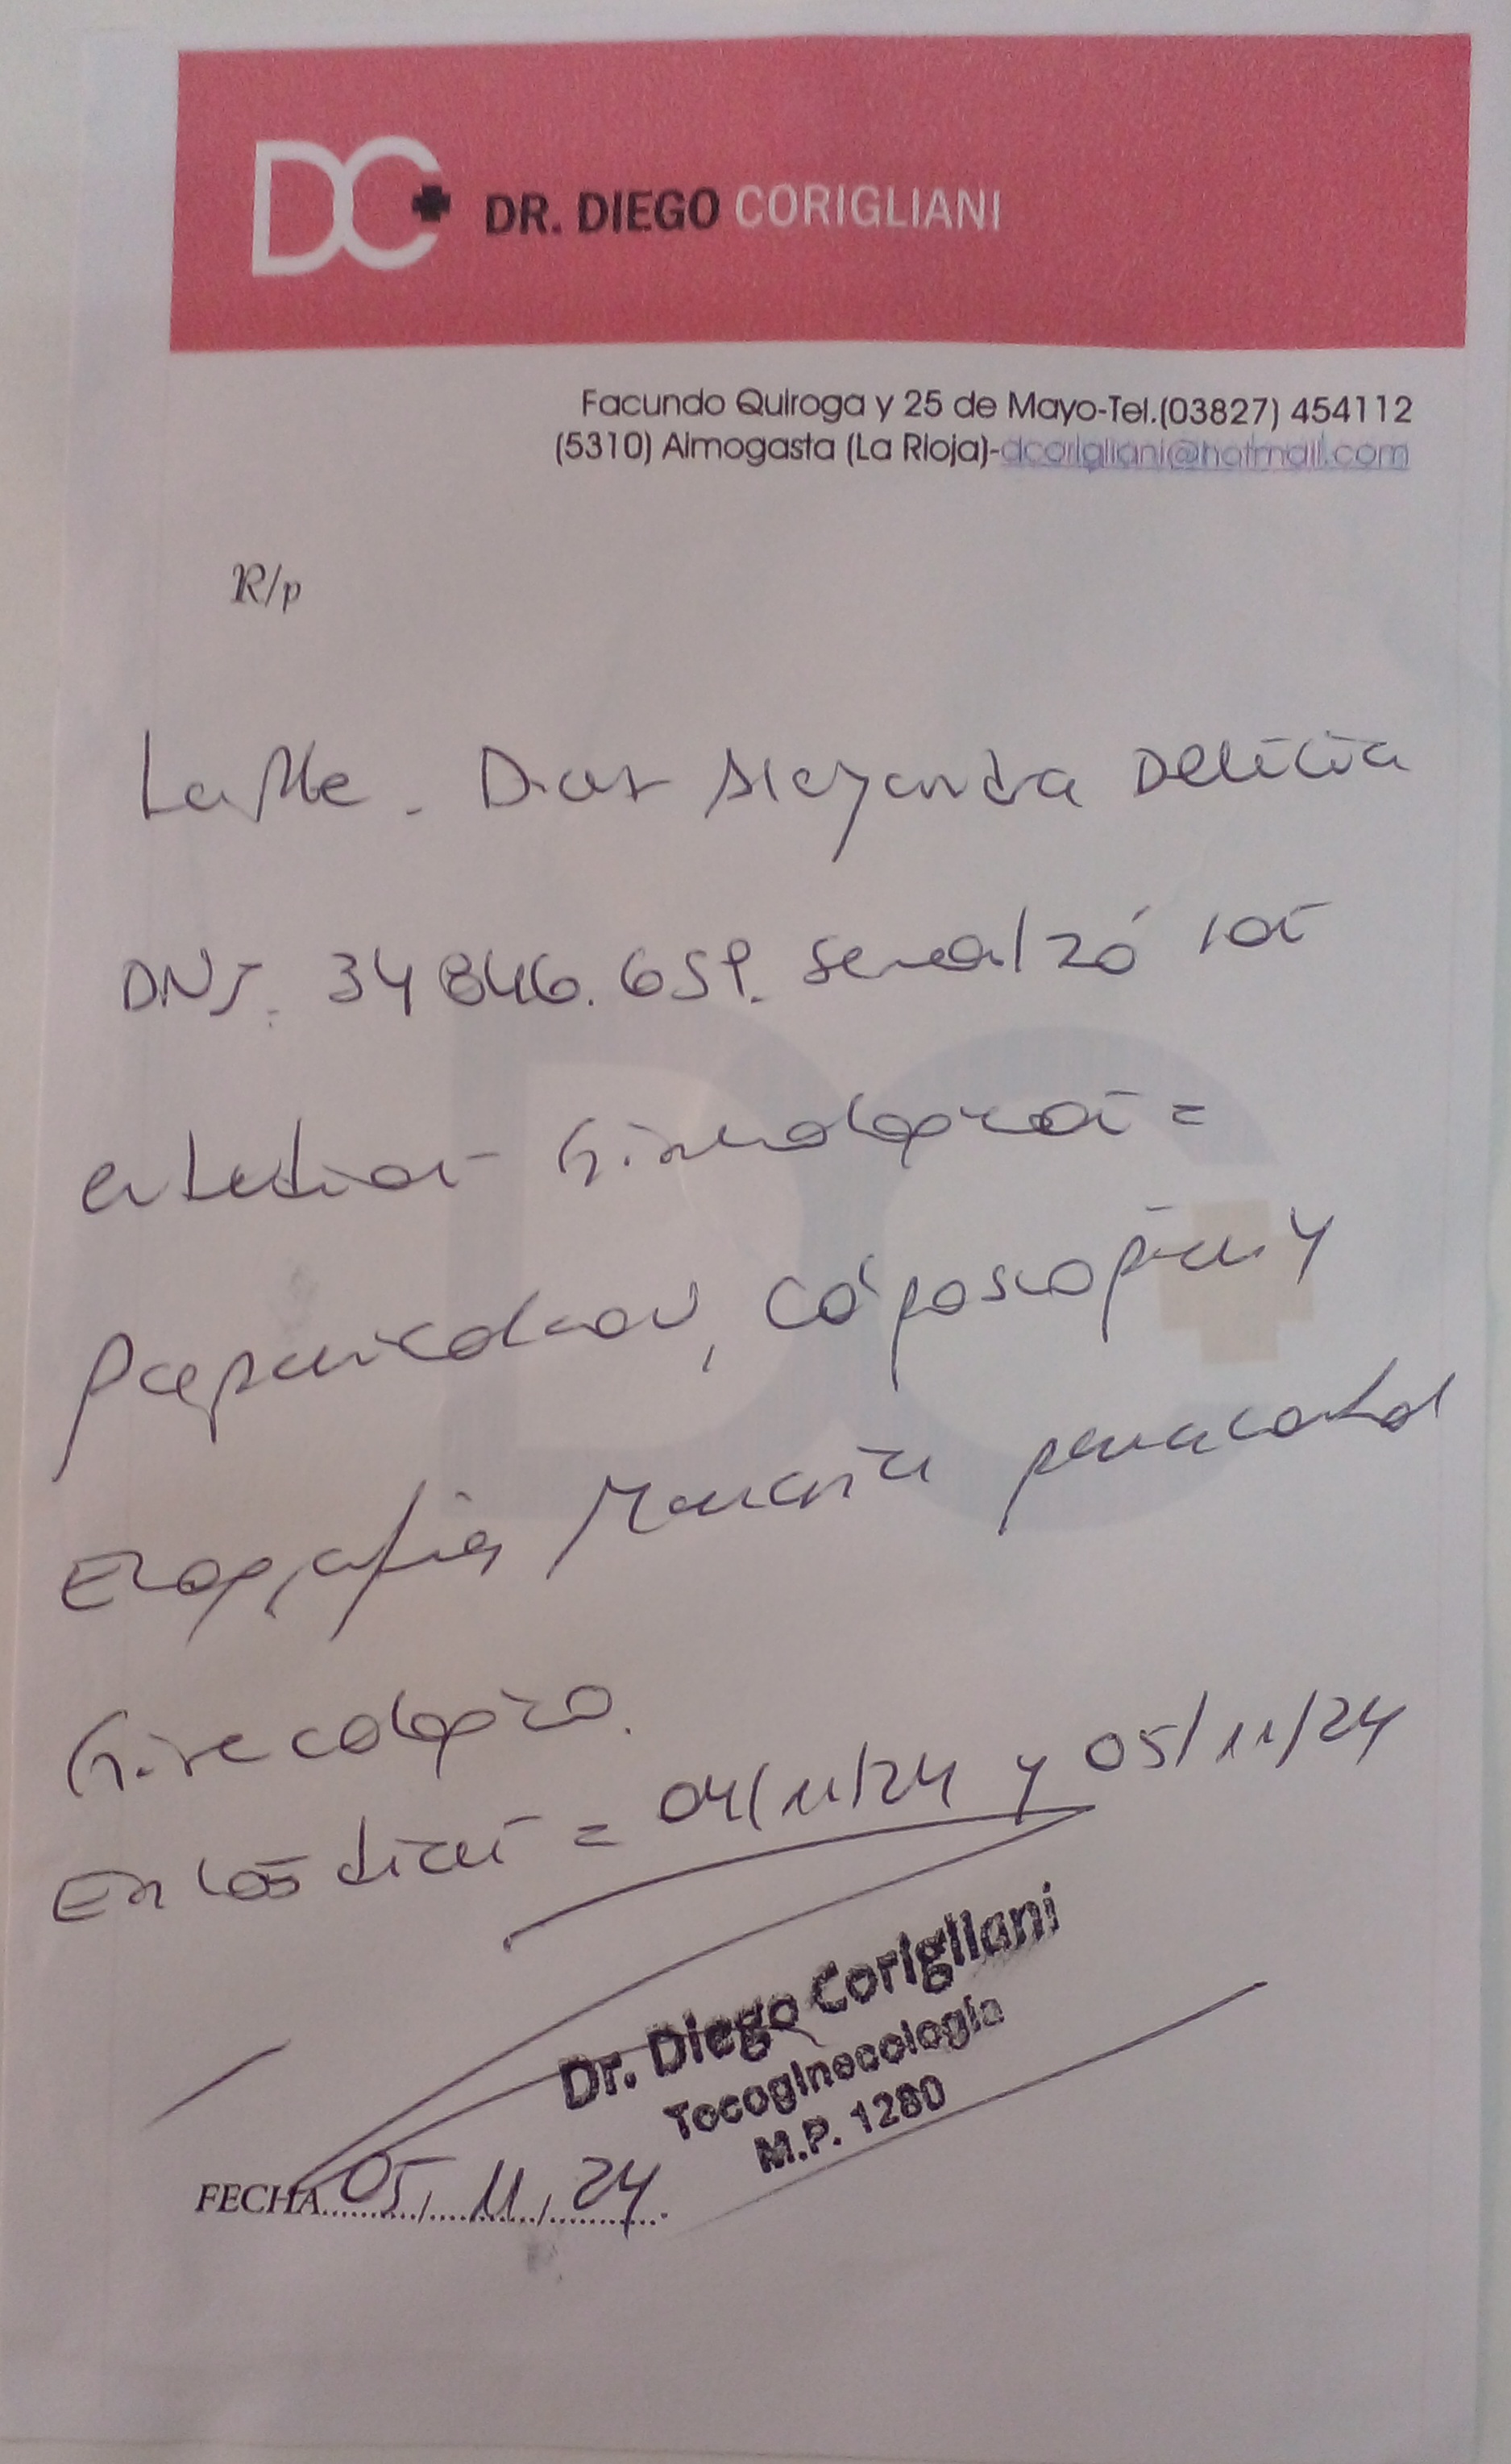 DC DR. DIEGO CORIGLIANI
Facundo Quiroga y 25 de Mayo-Tel.(03827) 454112
(5310) Aimogasta (La Rioja)-dcorigliani@hotmail.com
R/p
La Pte. Diaz Alejandra Delicia
DNI. 34846.659. se realizó los
estudios Ginecologicos =
Papanicolaou, Colposcopia y
Ecografia Mamaria para control
Ginecologico.
En los dias = 04/11/24 y 05/11/24
Dr. Diego Corigliani
Tocoginecología
M.P. 1280
FECHA 05 / 11 / 24